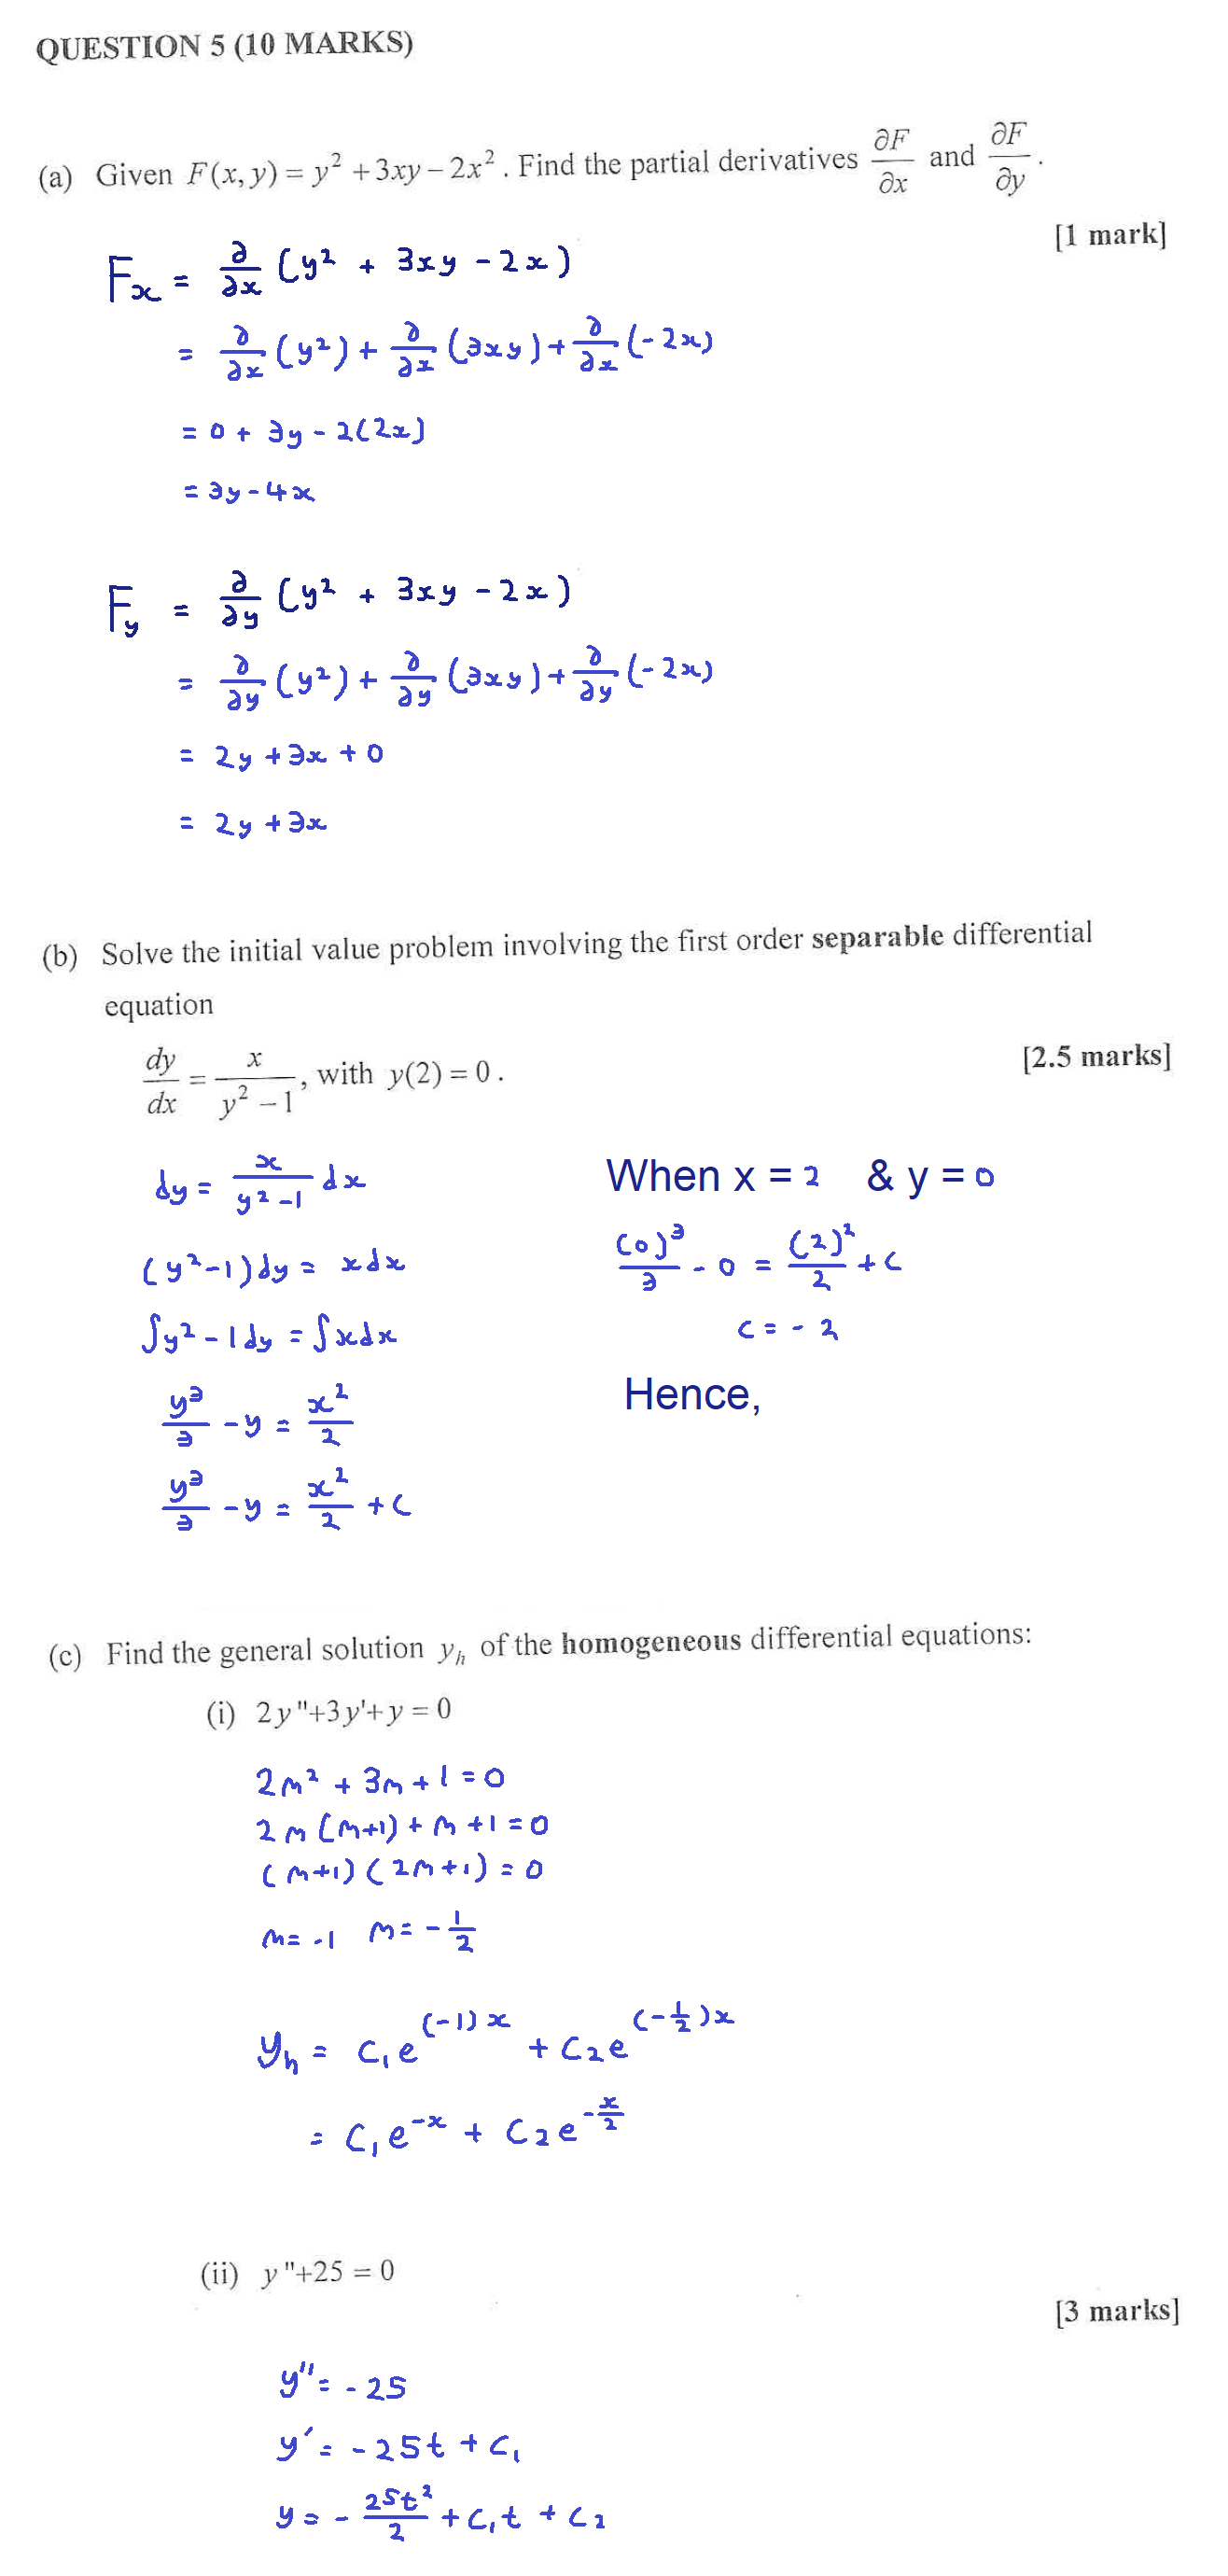 QUESTION 5 (10 MARKS)
(a) Given F(x, y) = y² + 3xy − 2x². Find the partial derivatives ∂F/∂x and ∂F/∂y.
[1 mark]
Fₓ = ∂/∂x (y² + 3xy - 2x)
= ∂/∂x (y²) + ∂/∂x (3xy) + ∂/∂x (-2x)
= 0 + 3y - 2(2x)
= 3y - 4x
F_y = ∂/∂y (y² + 3xy - 2x)
= ∂/∂y (y²) + ∂/∂y (3xy) + ∂/∂y (-2x)
= 2y + 3x + 0
= 2y + 3x
(b) Solve the initial value problem involving the first order separable differential
equation
dy/dx = x/(y² − 1), with y(2) = 0.
[2.5 marks]
dy = x/(y² - 1) dx
(y² - 1)dy = x dx
∫y² - 1 dy = ∫x dx
y³/3 - y = x²/2
y³/3 - y = x²/2 + c
When x = 2 & y = 0
(0)³/3 - 0 = (2)²/2 + c
c = - 2
Hence,
(c) Find the general solution y_h of the homogeneous differential equations:
(i) 2y"+3y'+y = 0
2m² + 3m + 1 = 0
2m(m+1) + m + 1 = 0
(m+1)(2m+1) = 0
m = -1 m = -1/2
y_h = c₁e^(-1)x + c₂e^(-1/2)x
= c₁e^-x + c₂e^-x/2
(ii) y"+25 = 0
[3 marks]
y'' = -25
y' = -25t + c₁
y = - 25t²/2 + c₁t + c₂